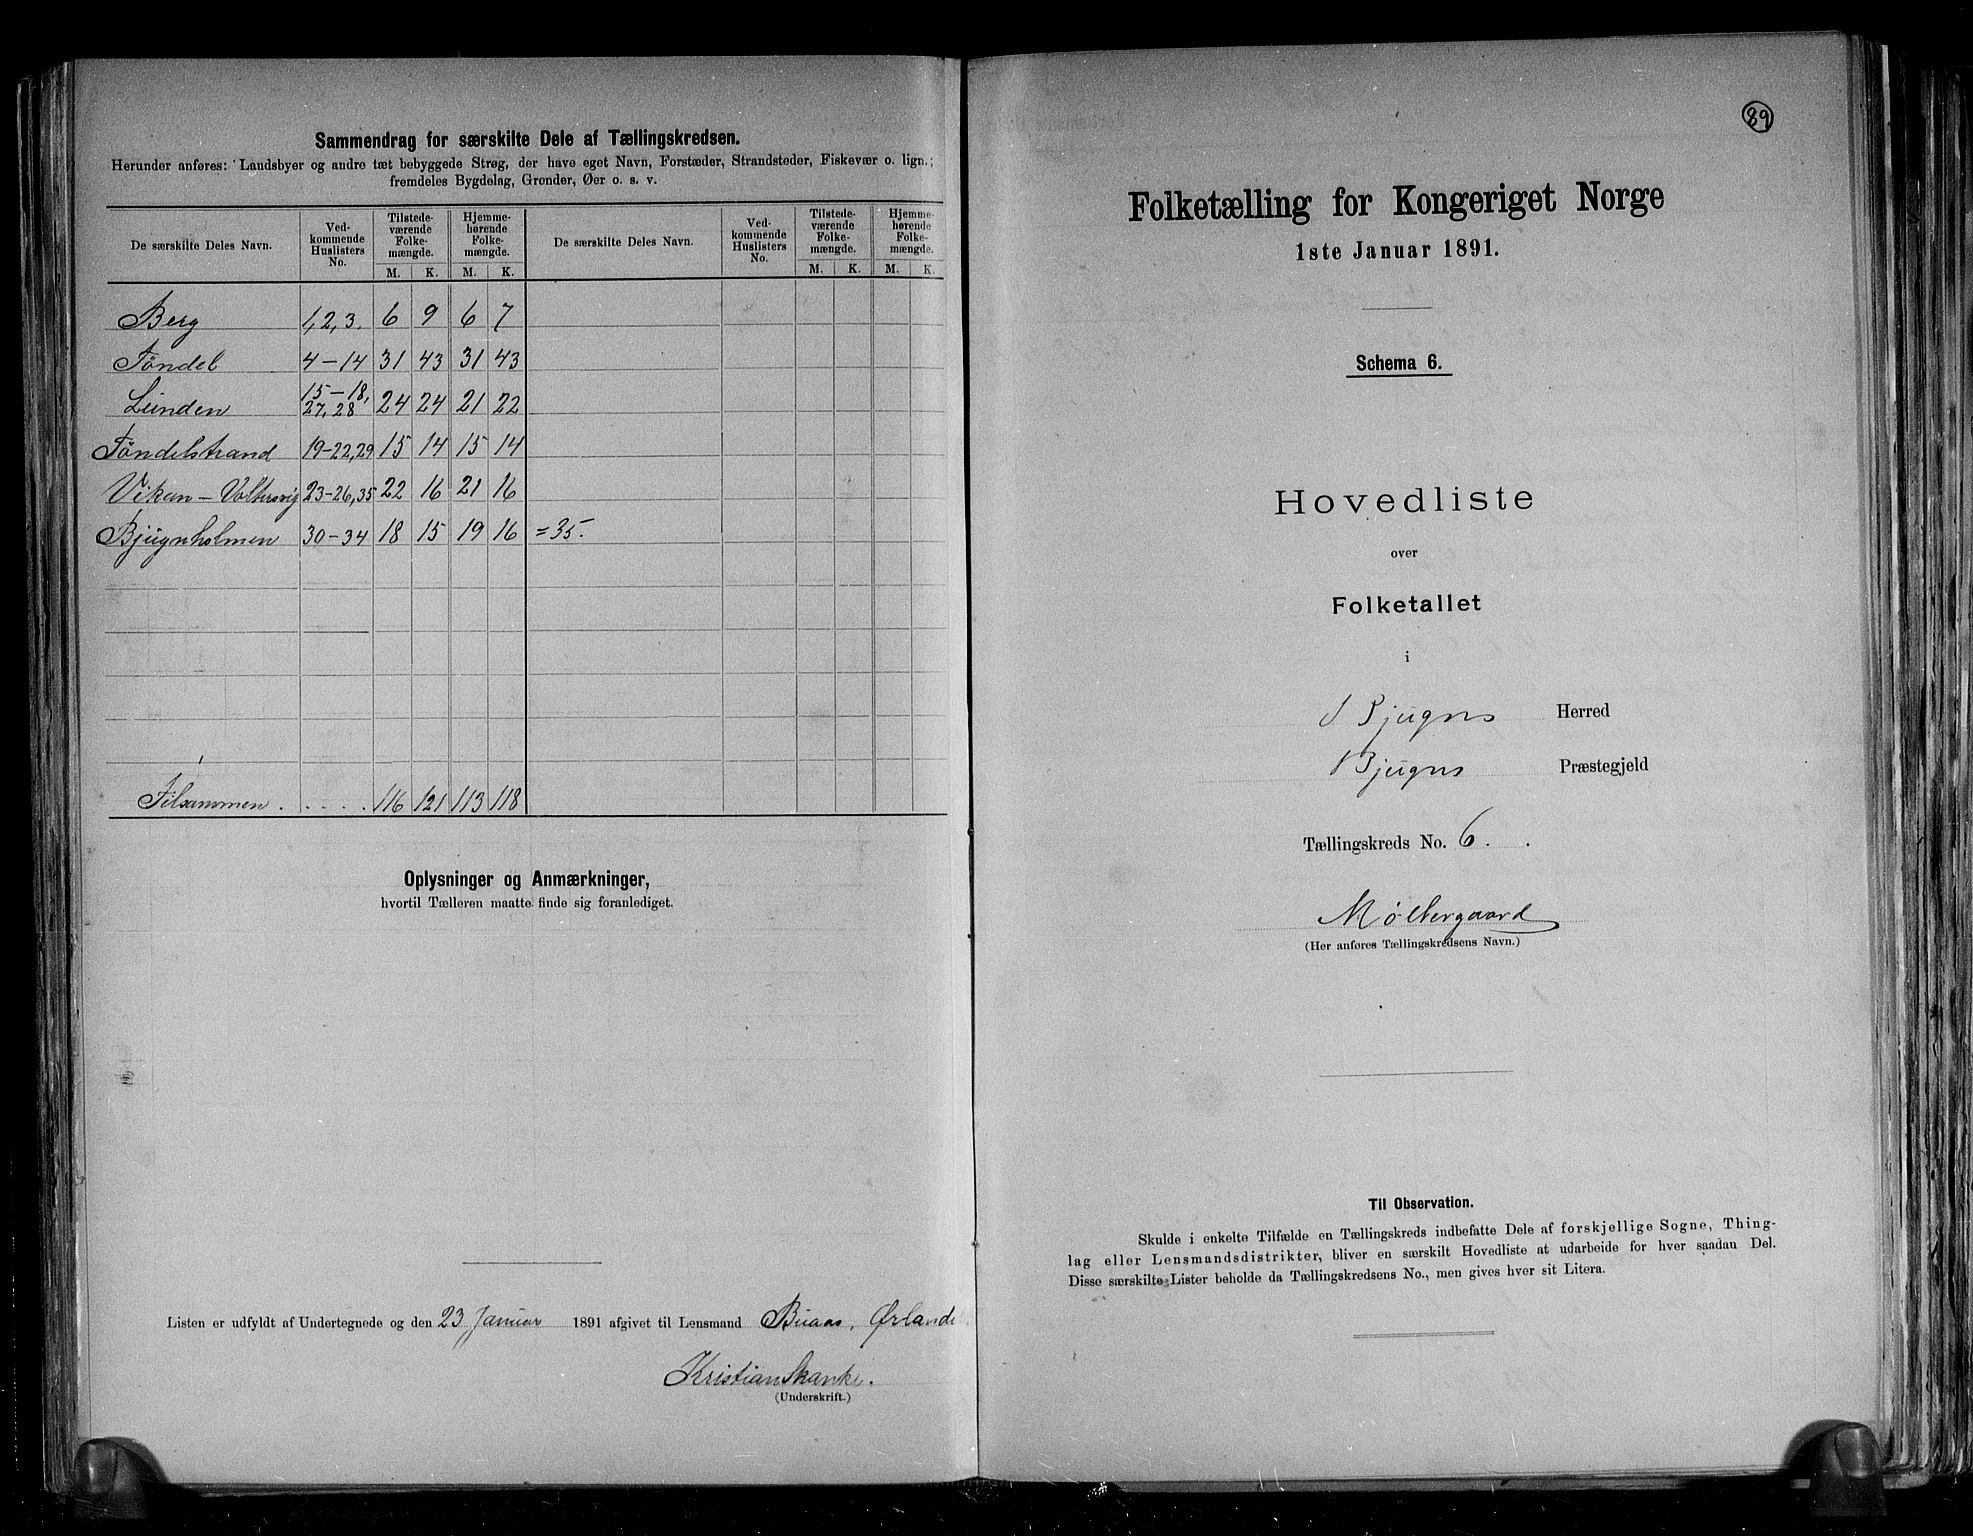 Sammendrag for særskilte Dele af Tællingskredsen.
Herunder anføres: Landsbyer og andre tæt bebyggede Strøg, der have eget Navn, Forstæder, Strandsteder, Fiskevær o. lign.;
fremdeles Bygdelag, Grender, Øer o. s. v.
De særskilte Deles Navn. Ved-kommende Huslisters No. Tilstede-værende Folke-mængde. Hjemme-hørende Folke-mængde. De særskilte Deles Navn. Ved-kommende Huslisters No. Tilstede-værende Folke-mængde. Hjemme-hørende Folke-mængde.
M. K. M. K. M. K. M. K.
Berg 1, 2, 3. 6 9 6 7
Töndel 4-14 31 43 31 43
Lunden 15-18, 27, 28 24 24 21 22
Töndelstrand 19-22, 29 15 14 15 14
Vikan - Valtersvig 23-26, 35 22 16 21 16
Bjugnholmen 30-34 18 15 19 16 =35.
Tilsammen . . . . . 116 121 113 118
Oplysninger og Anmærkninger,
hvortil Tælleren maatte finde sig foranlediget.
Listen er udfyldt af Undertegnede og den 23 Januar 1891 afgivet til Lensmand Buaas, Ørlandet
Kristian Skanke.
(Underskrift.)
89
Folketælling for Kongeriget Norge
1ste Januar 1891.
Schema 6.
Hovedliste
over
Folketallet
i
Bjugns Herred
Bjugns Præstegjeld
Tællingskreds No. 6.
Møltergaard
(Her anføres Tællingskredsens Navn.)
Til Observation.
Skulde i enkelte Tilfælde en Tællingskreds indbefatte Dele af forskjellige Sogne, Thing-
lag eller Lensmandsdistrikter, bliver en særskilt Hovedliste at udarbeide for hver saadan Del.
Disse særskilte Lister beholde da Tællingskredsens No., men gives hver sit Litera.